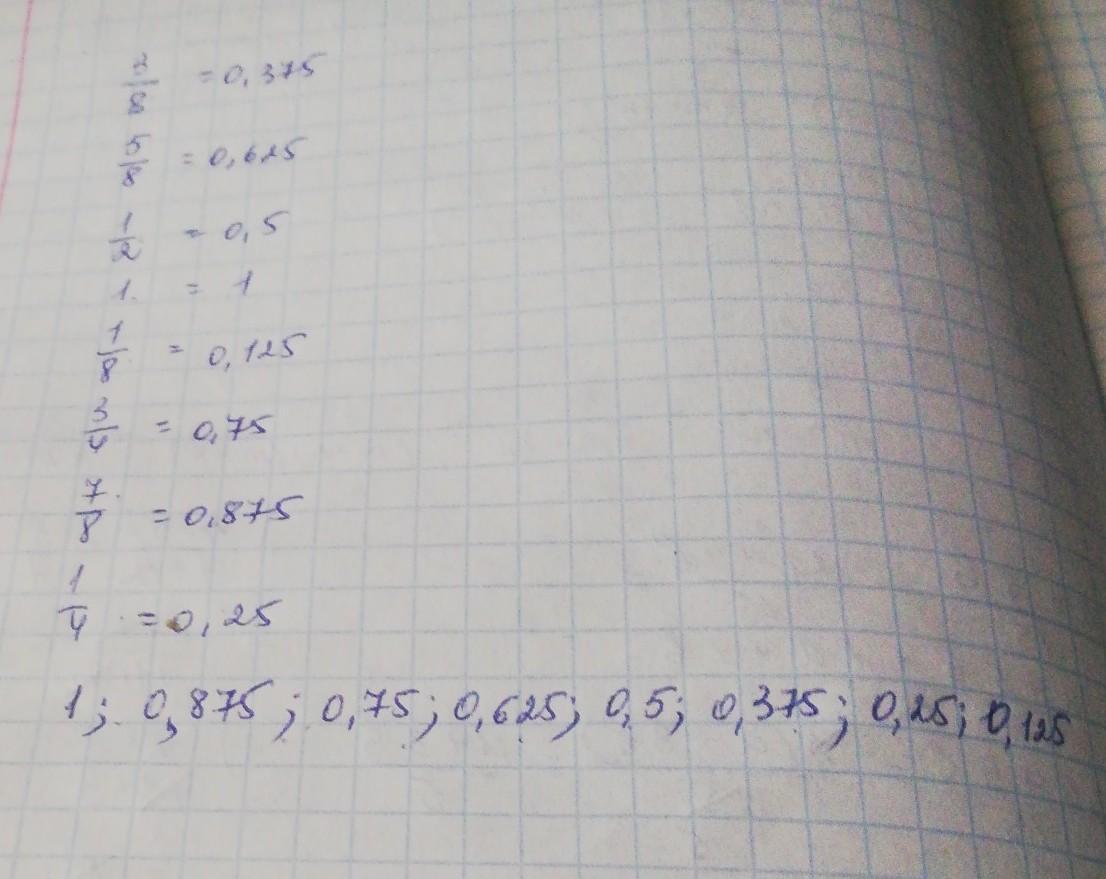 3/8 = 0,375
5/8 = 0,625
1/2 = 0,5
1 = 1
1/8 = 0,125
3/4 = 0,75
7/8 = 0,875
1/4 = 0,25
1; 0,875; 0,75; 0,625; 0,5; 0,375; 0,25; 0,125